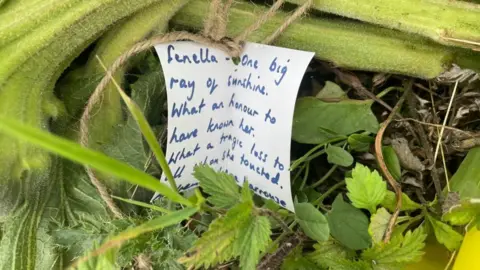 Lenella - One big
ray of sunshine.
What an honour to
have known her.
What a tragic loss to
she touched